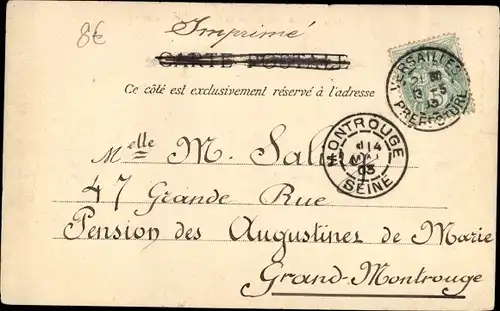 8€
Imprimé
CARTE POSTALE
Ce côté est exclusivement réservé à l'adresse
VERSAILLES
PRÉFECTURE
MONTROUGE
14
03
SEINE
Melle M.
47 Grande Rue
Pension des Augustines de Marie
Grand-Montrouge